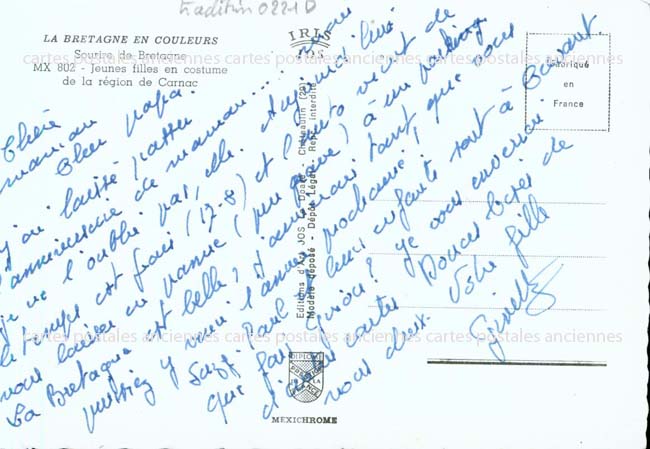 tradition 0221D
LA BRETAGNE EN COULEURS
Sourire de Bretagne
MX 802 - Jeunes filles en costume
de la région de Carnac
IRIS
JOS
Fabriqué
en
France
Editions d'Art JOS Doaré - Châteaulin (29)
Modèle déposé - Dépôt Légal - Repr. interdite
Chère maman Cher papa.
J'ai laissé passer
l'anniversaire de maman... mais
je ne l'oublie pas, elle. Aujourd'hui
le temps est frais (17-8) et l'auto vient de
nous laisser en panne (peu grave) à un parking.
La Bretagne est belle, j'aimerais tant que vous
puissiez y venir l'année prochaine!
Suzy. Paul leurs enfants sont à
que fait ? Je vous enverrai
d'autres cartes. Douces bises de
vous deux. Votre fille
Ginette
DIPLOME
PRESTIGE
FRANCE
MEXICHROME
cartes postales anciennes cartes postales anciennes cartes postales anciennes
cartes postales anciennes cartes postales anciennes cartes postales anciennes